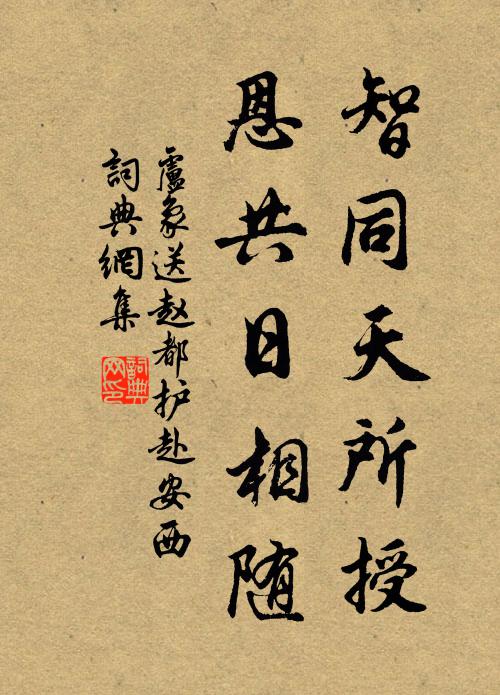 智同天所授
恩共日相随
盧象送赵都护赴安西
詞典網集
詞典网印